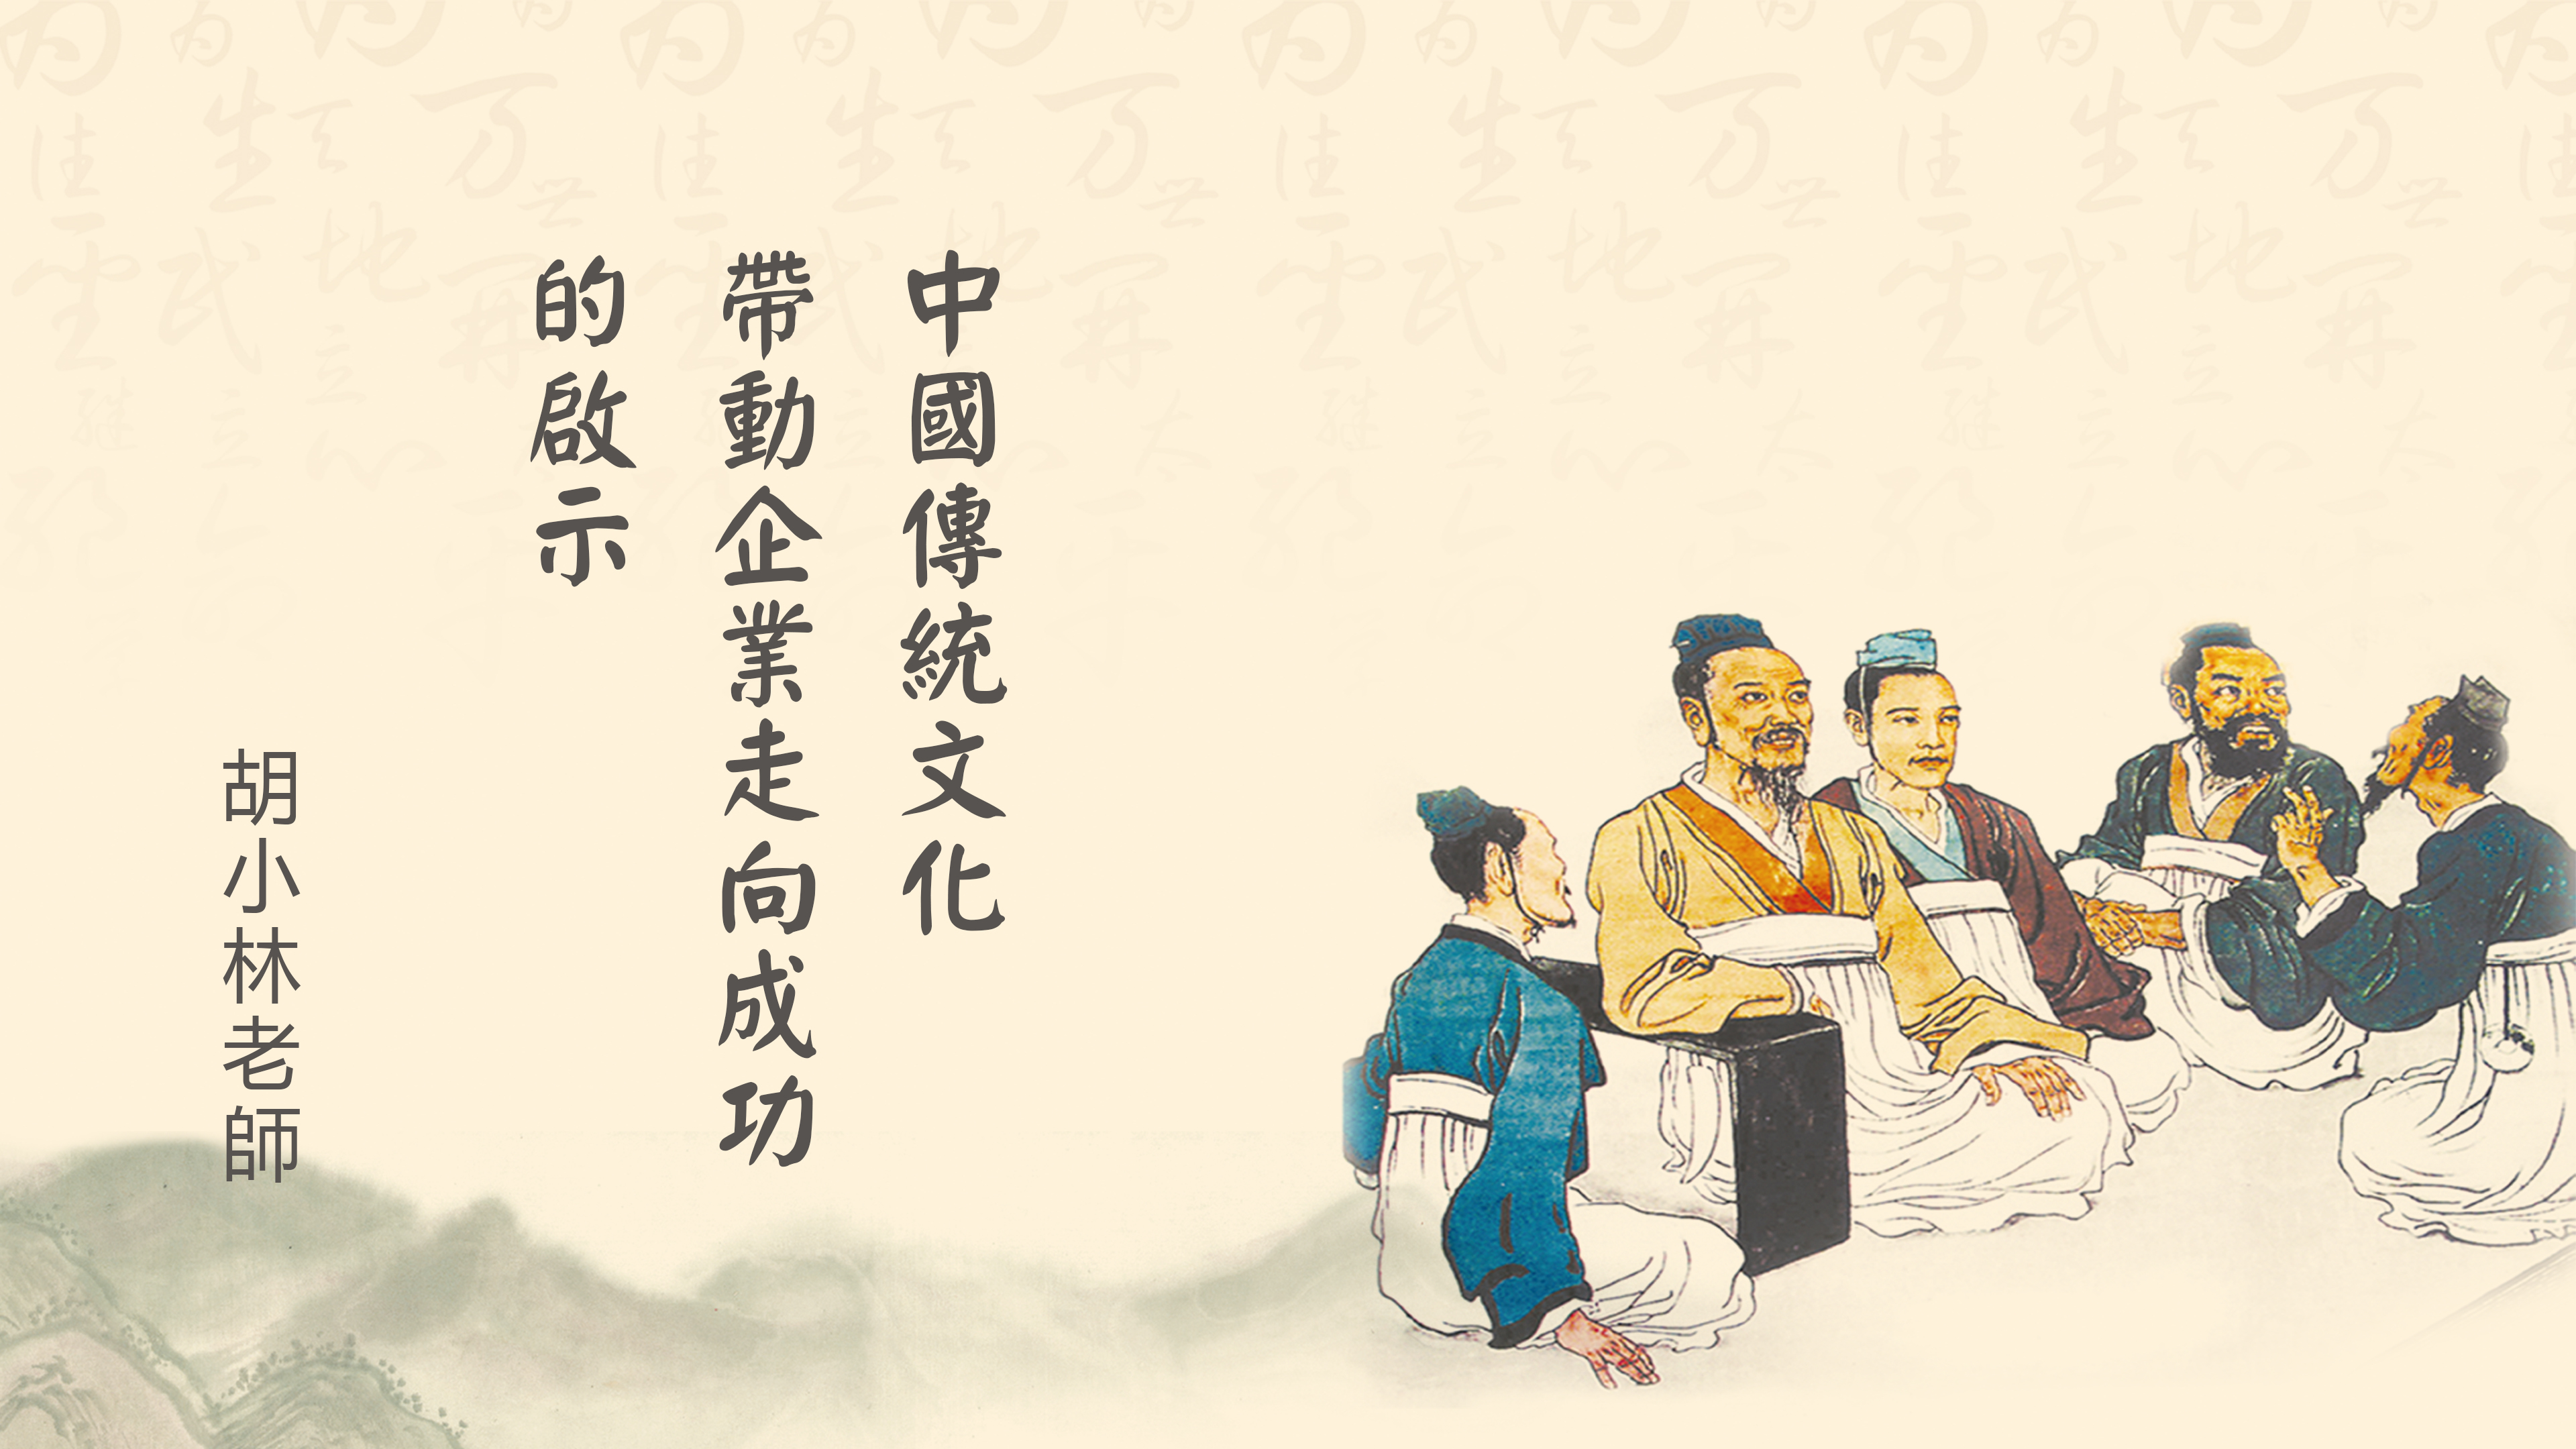 中國傳統文化
帶動企業走向成功
的啟示
胡小林老師